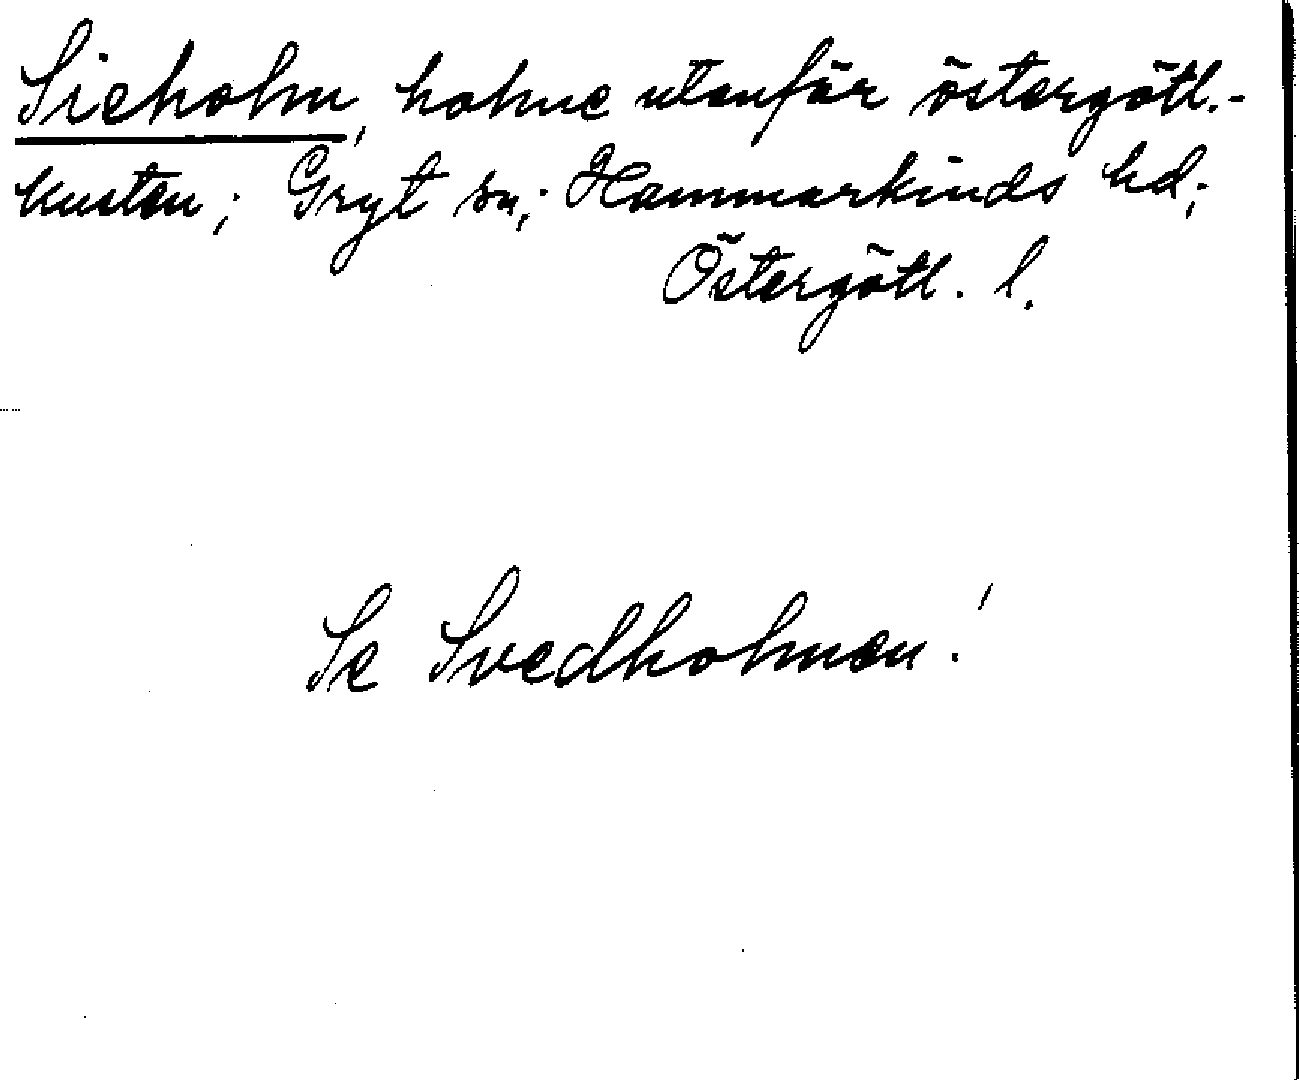 Sieholm, holme utanför östergötl.-
kusten; Gryt sn; Hammarkinds hd;
Östergötl. l.
Se Svedholmen!